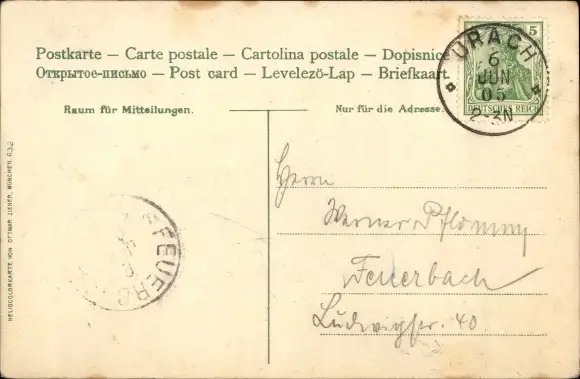 Postkarte – Carte postale – Cartolina postale – Dopisnice
Открытое-письмо – Post card – Levelezö-Lap – Briefkaart
Raum für Mitteilungen.
Nur für die Adresse.
5
DEUTSCHES REICH
URACH
6
JUN
05
2-3N
Herrn
Werner Pflomm
Feuerbach
Ludwigstr. 40
FEUERB
HELIOCOLORKARTE VON OTTMAR ZIEHER, MÜNCHEN. 632